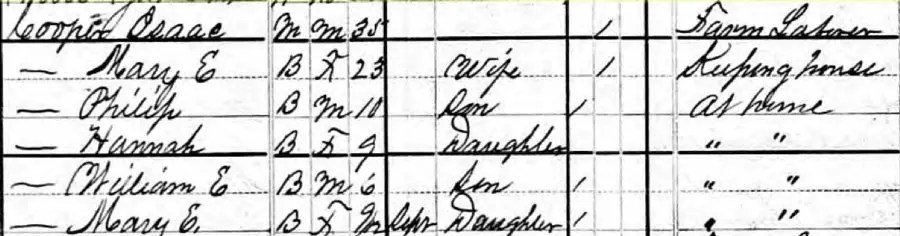 Cooper Isaac M M 35 / Farm Laborer
— Mary E B F 23 Wife / Keeping house
— Philip B M 10 Son / At home
— Hannah B F 9 Daughter " "
— William E B M 6 Son / " "
— Mary E. B F Sept Daughter / " "